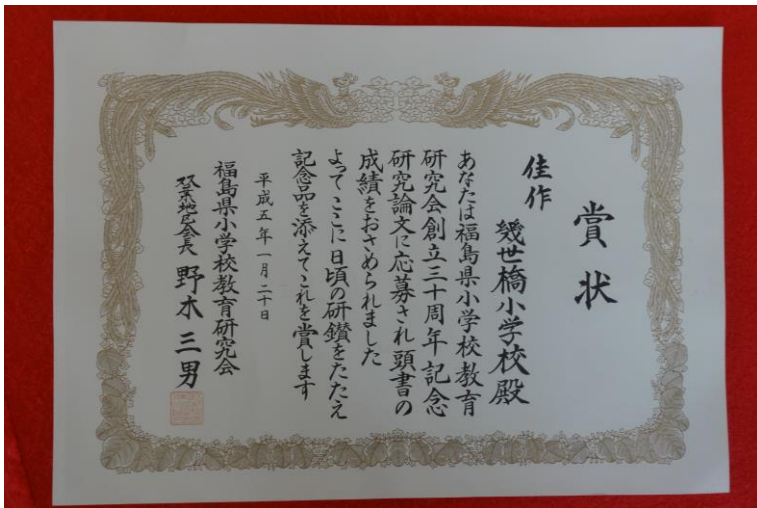 賞状
佳作
幾世橋小学校殿
あなたは福島県小学校教育
研究会創立三十周年記念
研究論文に応募され頭書の
成績をおさめられました
よってここに日頃の研鑚をたたえ
記念品を添えてこれを賞します
平成五年一月二十日
福島県小学校教育研究会
双葉地区会長 野木三男